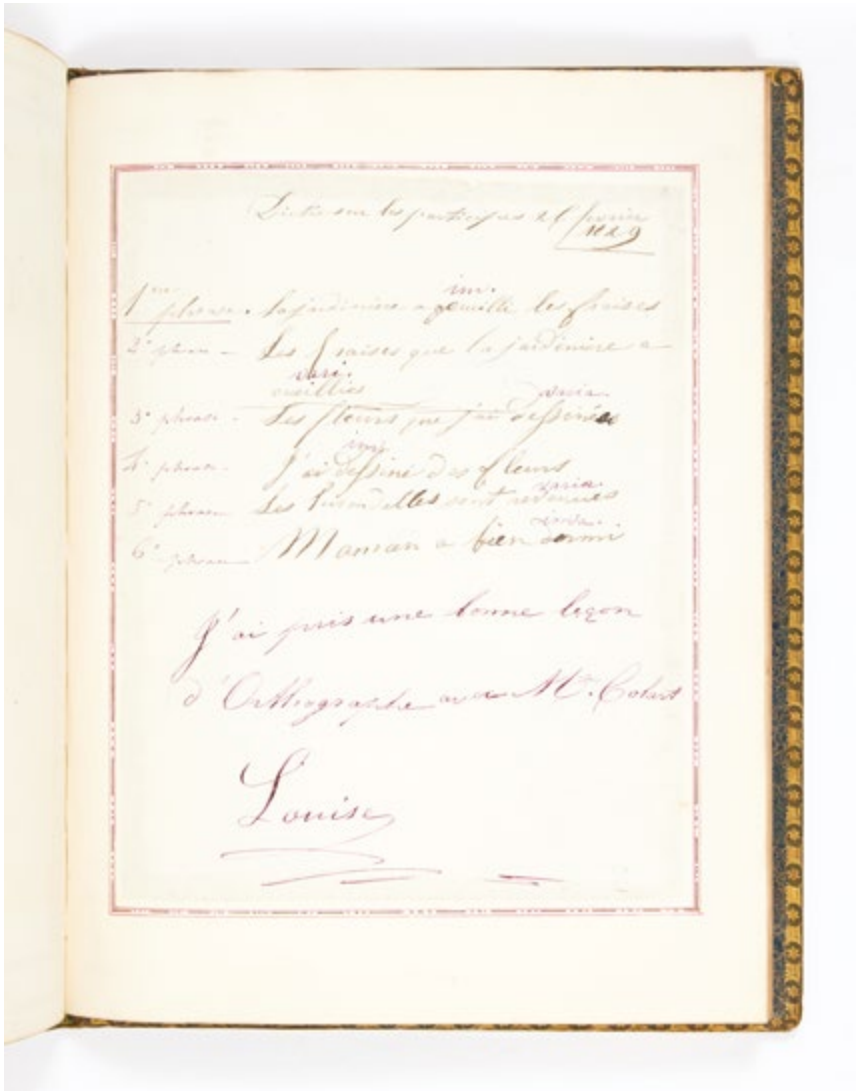 Dictée sur les participes 26 février
1829
im.
1ère phrase. La jardinière a cueilli les fraises
2e phrase – Les fraises que la jardinière a
vari.
cueillies
varia.
3e phrase – Les fleurs que j'ai dessinées
im.
4e phrase – J'ai dessiné des fleurs
varia.
5e phrase – Les hirondelles sont revenues
inva.
6e phrase – Maman a bien dormi
J'ai pris une bonne leçon
d'Orthographe avec Mr. Colart
Louise